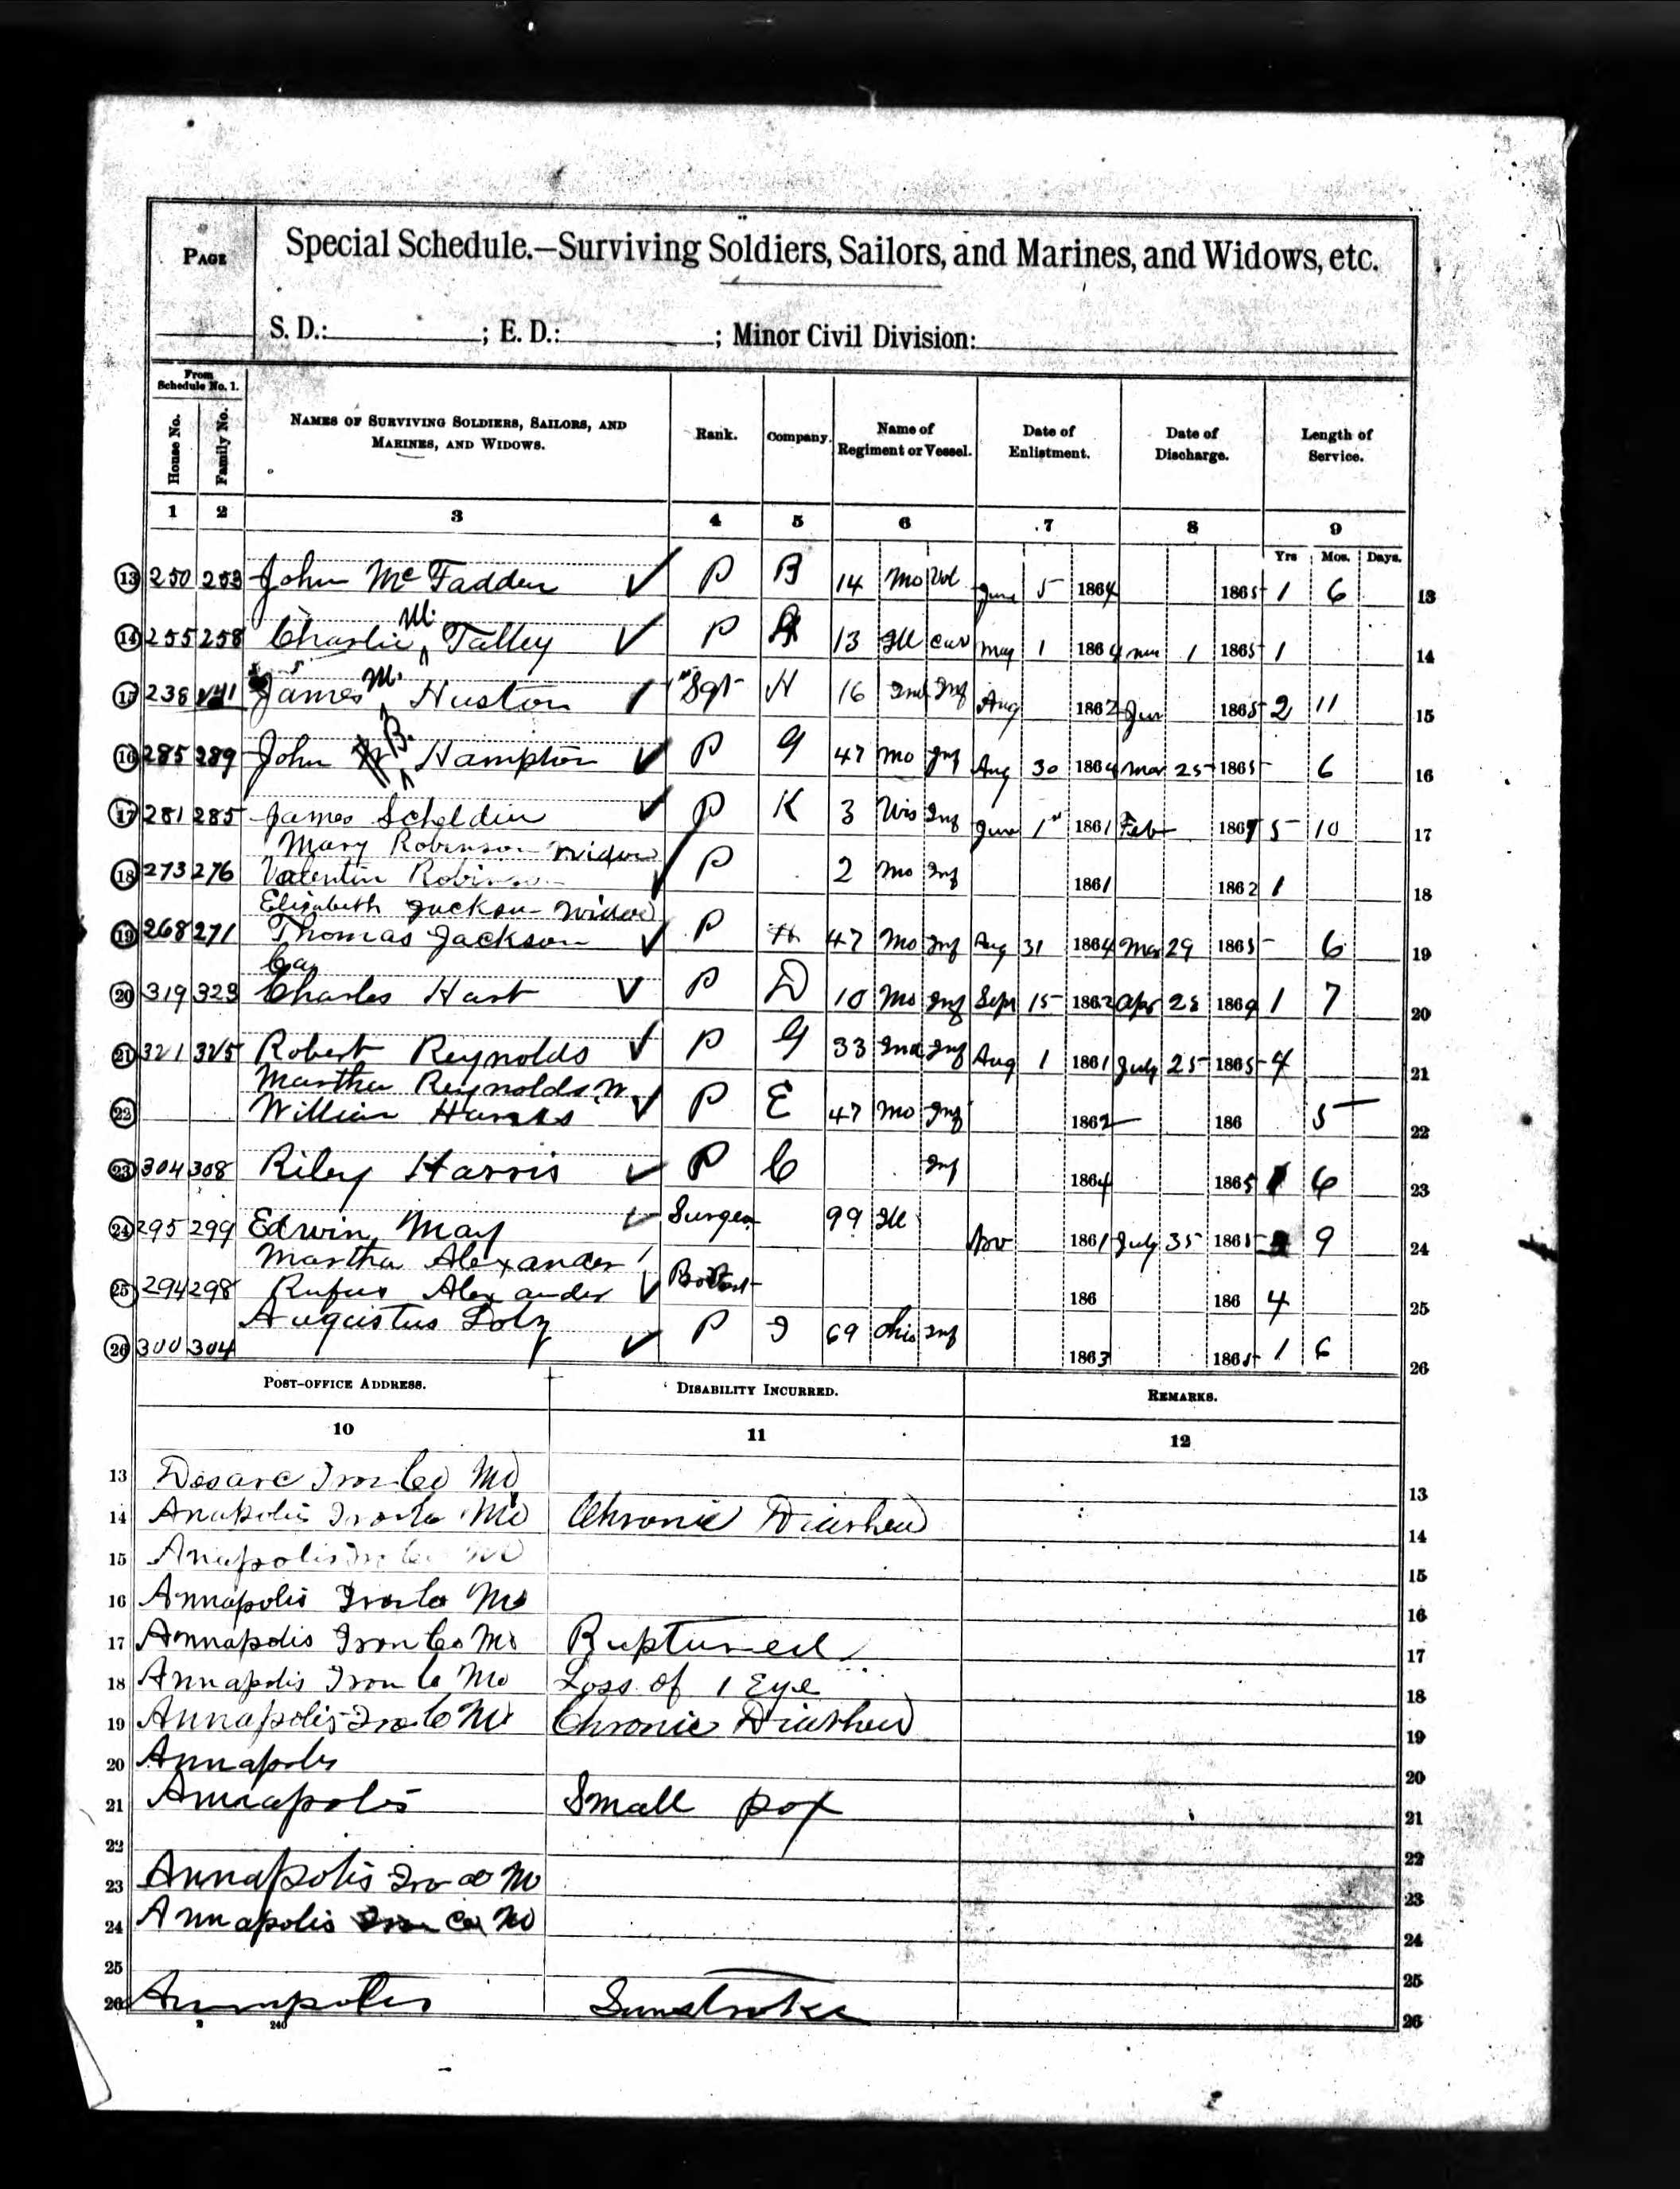 PAGE
Special Schedule.—Surviving Soldiers, Sailors, and Marines, and Widows, etc.
S. D.: ; E. D.: ; Minor Civil Division:
From Schedule No. 1.
House No. Family No. NAMES OF SURVIVING SOLDIERS, SAILORS, AND MARINES, AND WIDOWS. Rank. Company. Name of Regiment or Vessel. Date of Enlistment. Date of Discharge. Length of Service.
1 2 3 4 5 6 7 8 9
Yrs Mos. Days.
13 250 253 John McFadden P B 14 Mo Vol June 5 1864 1865 1 6 13
14 255 258 Charlie M. Talley P 13 Ill Cav May 1 1864 1 1865 1 14
15 238 241 James M. Huston Sgt H 16 Ind Inf Aug 1862 Jun 1865 2 11 15
16 285 289 John B. Hampton P G 47 Mo Inf Aug 30 1864 Mar 25 1865 6 16
17 281 285 James Scheldin P K 3 Wis Inf June 1st 1861 Feb 186 5 10 17
Mary Robinson widow
18 273 276 Valentin Robinson P 2 Mo Inf 1861 1862 1 18
Elizabeth Jackson Widow
19 268 271 Thomas Jackson P H 47 Mo Inf Aug 31 1864 Mar 29 1865 6 19
20 319 323 Charles Hart P D 10 Mo Inf Sept 15 1862 Apr 28 1864 1 7 20
21 321 325 Robert Reynolds P G 33 Ind Inf Aug 1 1861 July 25 1865 4 21
Martha Reynolds W.
22 William P E 47 Mo Inf 1862 186 5 22
23 304 308 Riley Harris P C Inf 1864 1865 6 23
24 295 299 Edwin May Surgeon 99 Ill Nov 1861 July 35 1865 9 24
Martha Alexander
25 294 298 Rufus Alexander 186 186 4 25
Augustus
26 300 304 P I 69 Ohio Inf 1863 1865 1 6 26
POST-OFFICE ADDRESS. DISABILITY INCURRED. REMARKS.
10 11 12
13 Desarc Iron Co Mo 13
14 Anapolis Iron Co Mo Chronic Diarhea 14
15 Anapolis Iron Co Mo 15
16 Annapolis Iron Co Mo 16
17 Annapolis Iron Co Mo Ruptured 17
18 Annapolis Iron Co Mo Loss of 1 Eye 18
19 Annapolis Iron Co Mo Chronic Diarhea 19
20 Annapolis 20
21 Annapolis Small pox 21
22 22
23 Annapolis Iron Co Mo 23
24 Annapolis Iron Co Mo 24
25 25
26 Annapolis Sunstroke 26
240